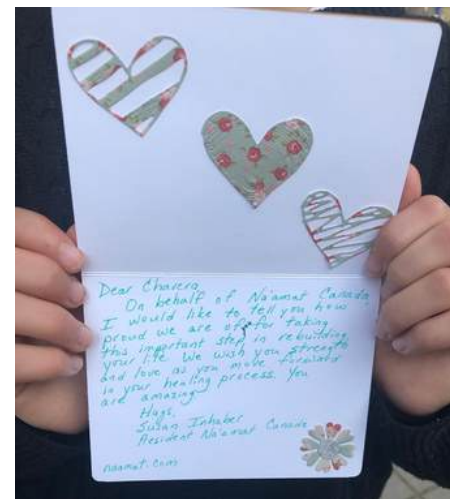 Dear Chavera,
On behalf of Na'amat Canada,
I would like to tell you how
proud we are of for taking
this important step in rebuilding
your life. We wish you strength
and love as you move forward
in your healing process. You
are amazing.
Hugs,
Susan Inhaber
President Na'amat Canada
naamat.com